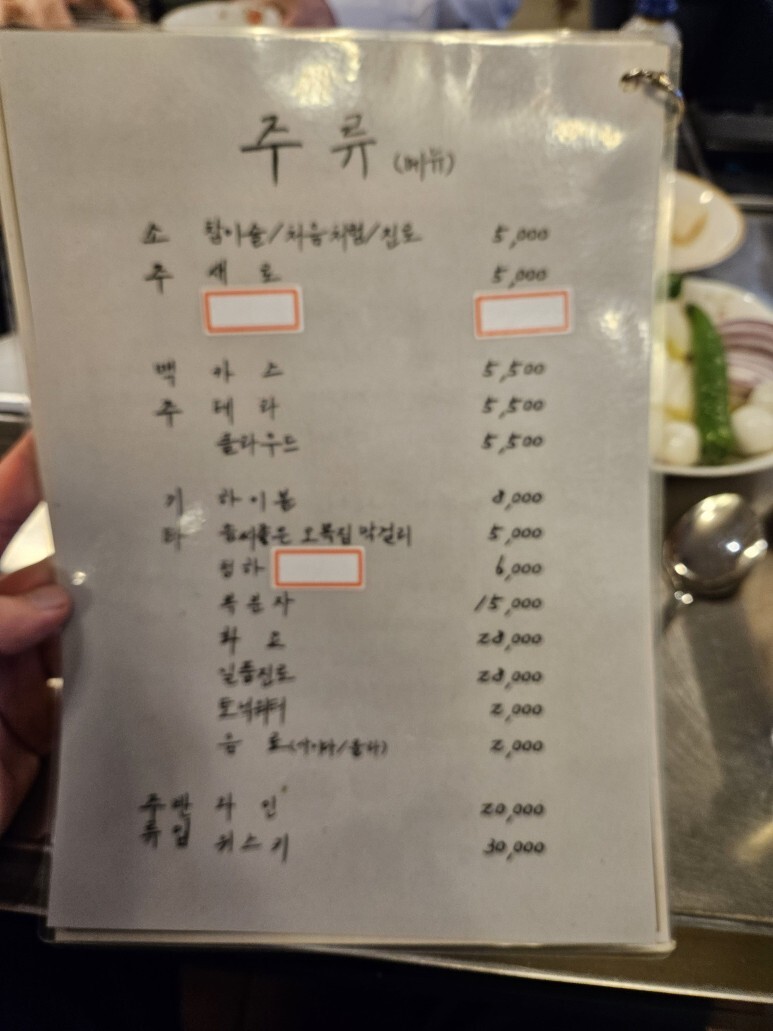 주류 (메뉴)
소 참이슬/처음처럼/진로 5,000
주 새로 5,000
맥 아스 5,500
주 테라 5,500
클라우드 5,500
기 하이볼 8,000
타 오목집 막걸리 5,000
청하 6,000
복분자 15,000
화요 28,000
일품진로 28,000
토닉워터 2,000
음료(사이다/콜라) 2,000
주류 반입 와인 20,000
위스키 30,000